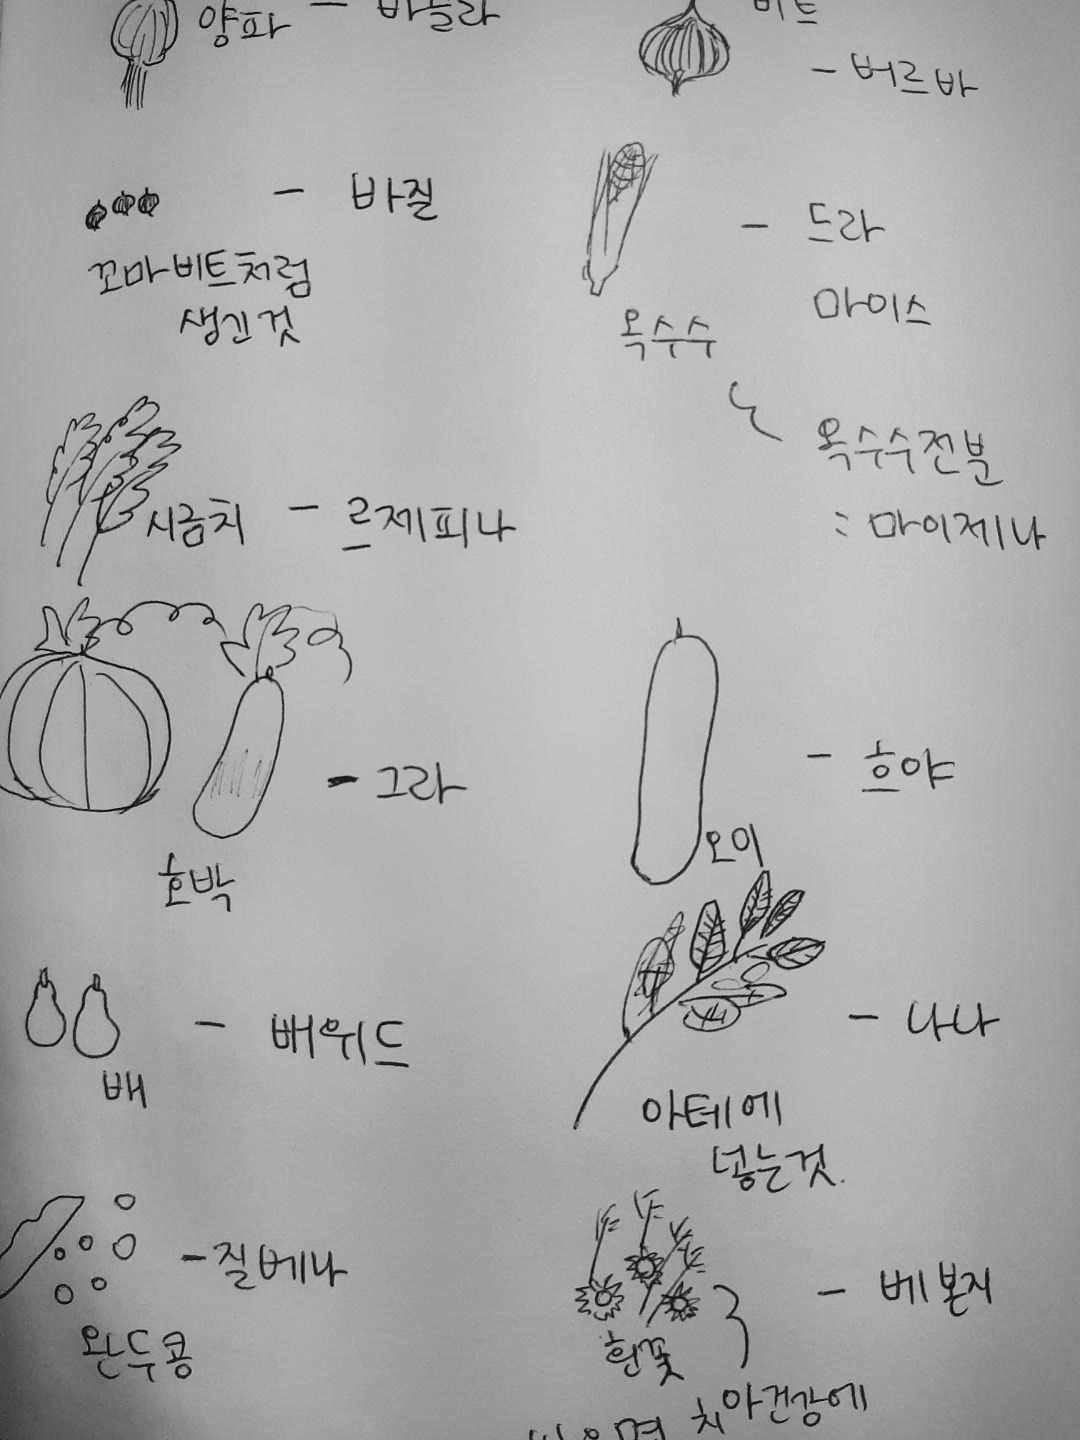 양파 - 바늘라
비트
- 버르바
- 바질
꼬마비트처럼
생긴것
- 드라
마이스
옥수수
옥수수전분
: 마이제나
시금치 - 르제피나
- 그라
호박
- 흐야
오이
- 배위드
배
- 나나
아테에
넣는것.
- 질베나
완두콩
- 베본지
흰꽃
치아건강에